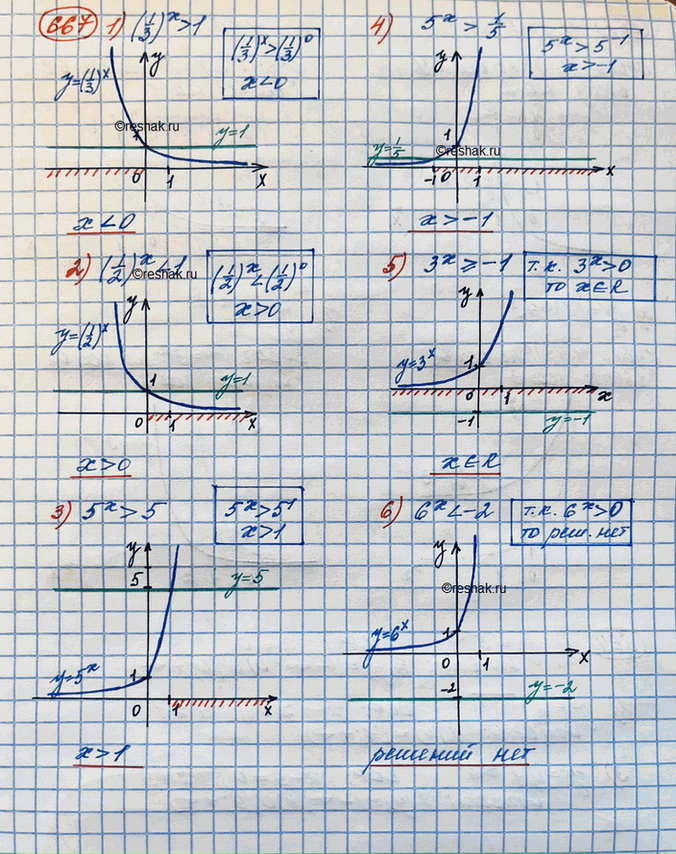 667 1) (1/3)^x > 1
(1/3)^x > (1/3)^0
x < 0
y
y=(1/3)^x
©reshak.ru
1
y=1
0 1 x
x < 0
4) 5^x > 1/5
5^x > 5^-1
x > -1
y
1
©reshak.ru
y=1/5
-1 0 1 x
x > -1
2) (1/2)^x < 1
©reshak.ru
(1/2)^x < (1/2)^0
x > 0
y
y=(1/2)^x
1
y=1
0 1 x
x > 0
5) 3^x ⩾ -1
т.к. 3^x > 0
то x∈R
y
y=3^x
1
0 1 x
-1
y=-1
x∈R
3) 5^x > 5
5^x > 5^1
x > 1
y
5
y=5
y=5^x
1
0 1 x
x > 1
6) 6^x < -2
т.к. 6^x > 0
то реш. нет
y
©reshak.ru
y=6^x
1
0 1 x
-2
y=-2
решений нет